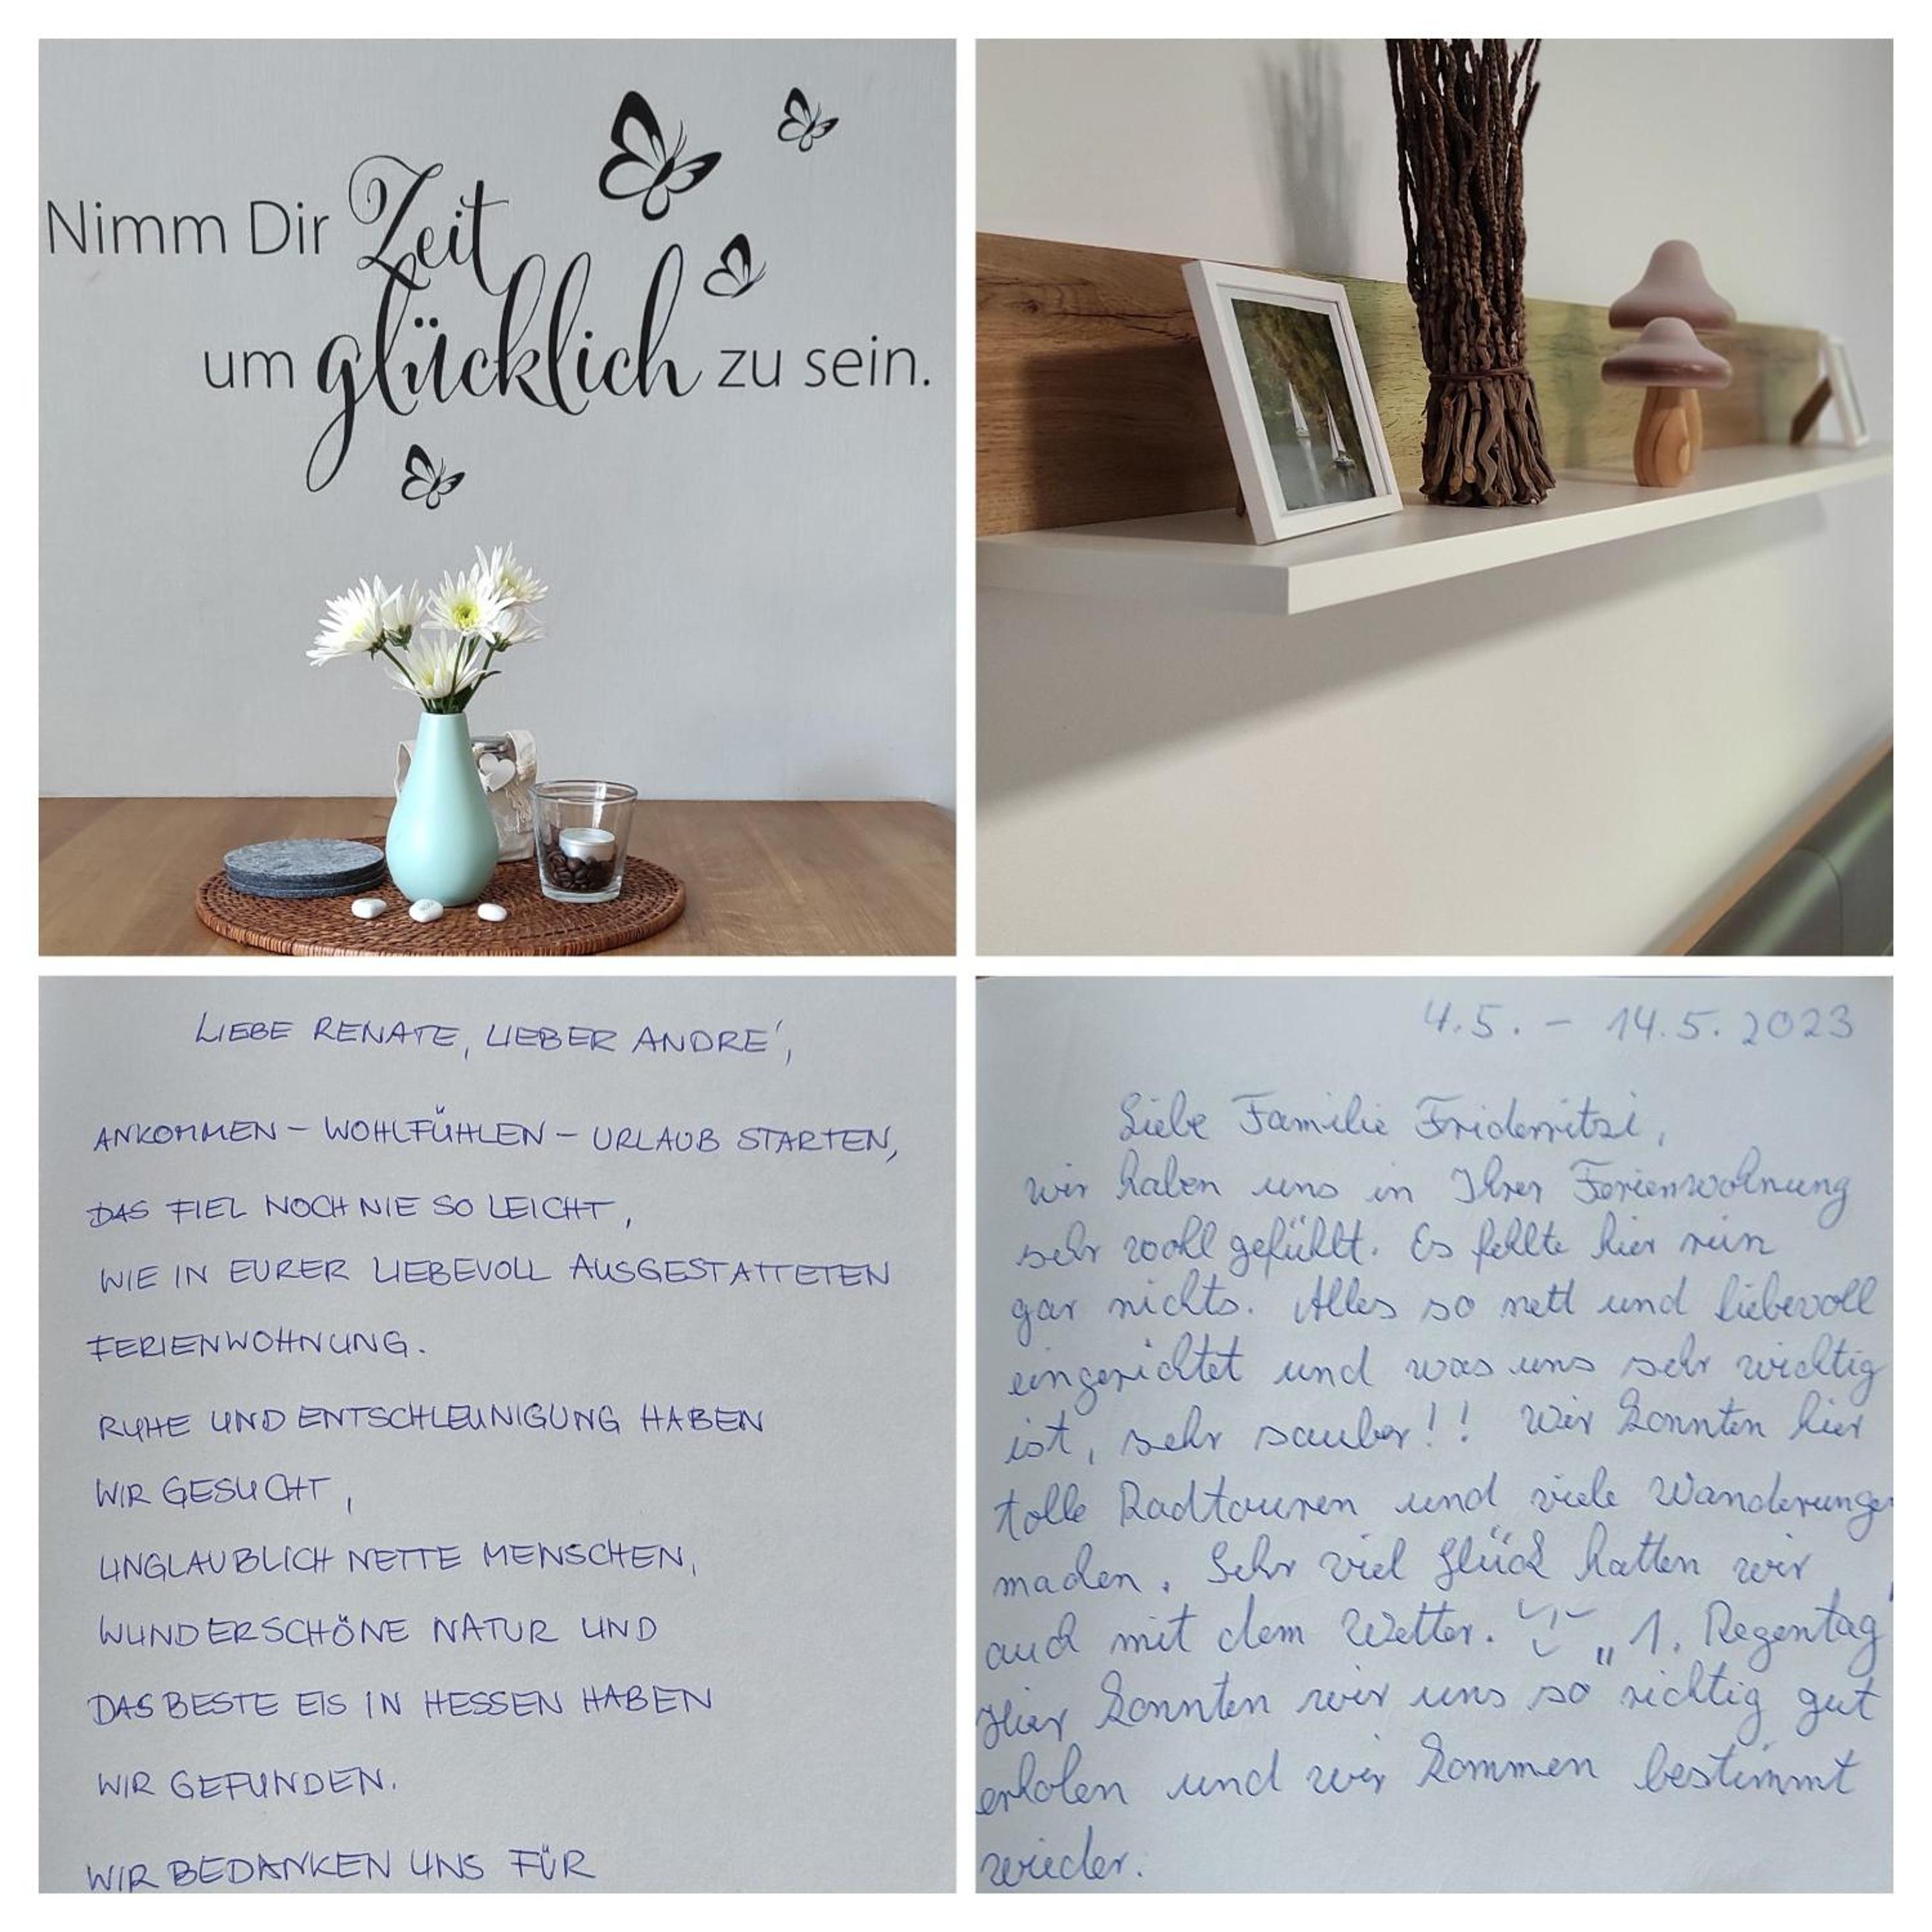 Nimm Dir Zeit
um glücklich zu sein.
LIEBE RENATE, LIEBER ANDRE',
ANKOMMEN – WOHLFÜHLEN – URLAUB STARTEN,
DAS FIEL NOCH NIE SO LEICHT,
WIE IN EURER LIEBEVOLL AUSGESTATTETEN
FERIENWOHNUNG.
RUHE UND ENTSCHLEUNIGUNG HABEN
WIR GESUCHT,
UNGLAUBLICH NETTE MENSCHEN,
WUNDERSCHÖNE NATUR UND
DAS BESTE EIS IN HESSEN HABEN
WIR GEFUNDEN.
WIR BEDANKEN UNS FÜR
4.5. – 14.5.2023
Liebe Familie
wir haben uns in Ihrer Ferienwohnung
sehr wohl gefühlt. Es fehlte hier rein
gar nichts. Alles so nett und liebevoll
eingerichtet und was uns sehr wichtig
ist, sehr sauber!! Wir konnten hier
tolle Radtouren und viele Wanderungen
machen. Sehr viel Glück hatten wir
auch mit dem Wetter. „1. Regentag"
Hier konnten wir uns so richtig gut
erholen und wir kommen bestimmt
wieder.